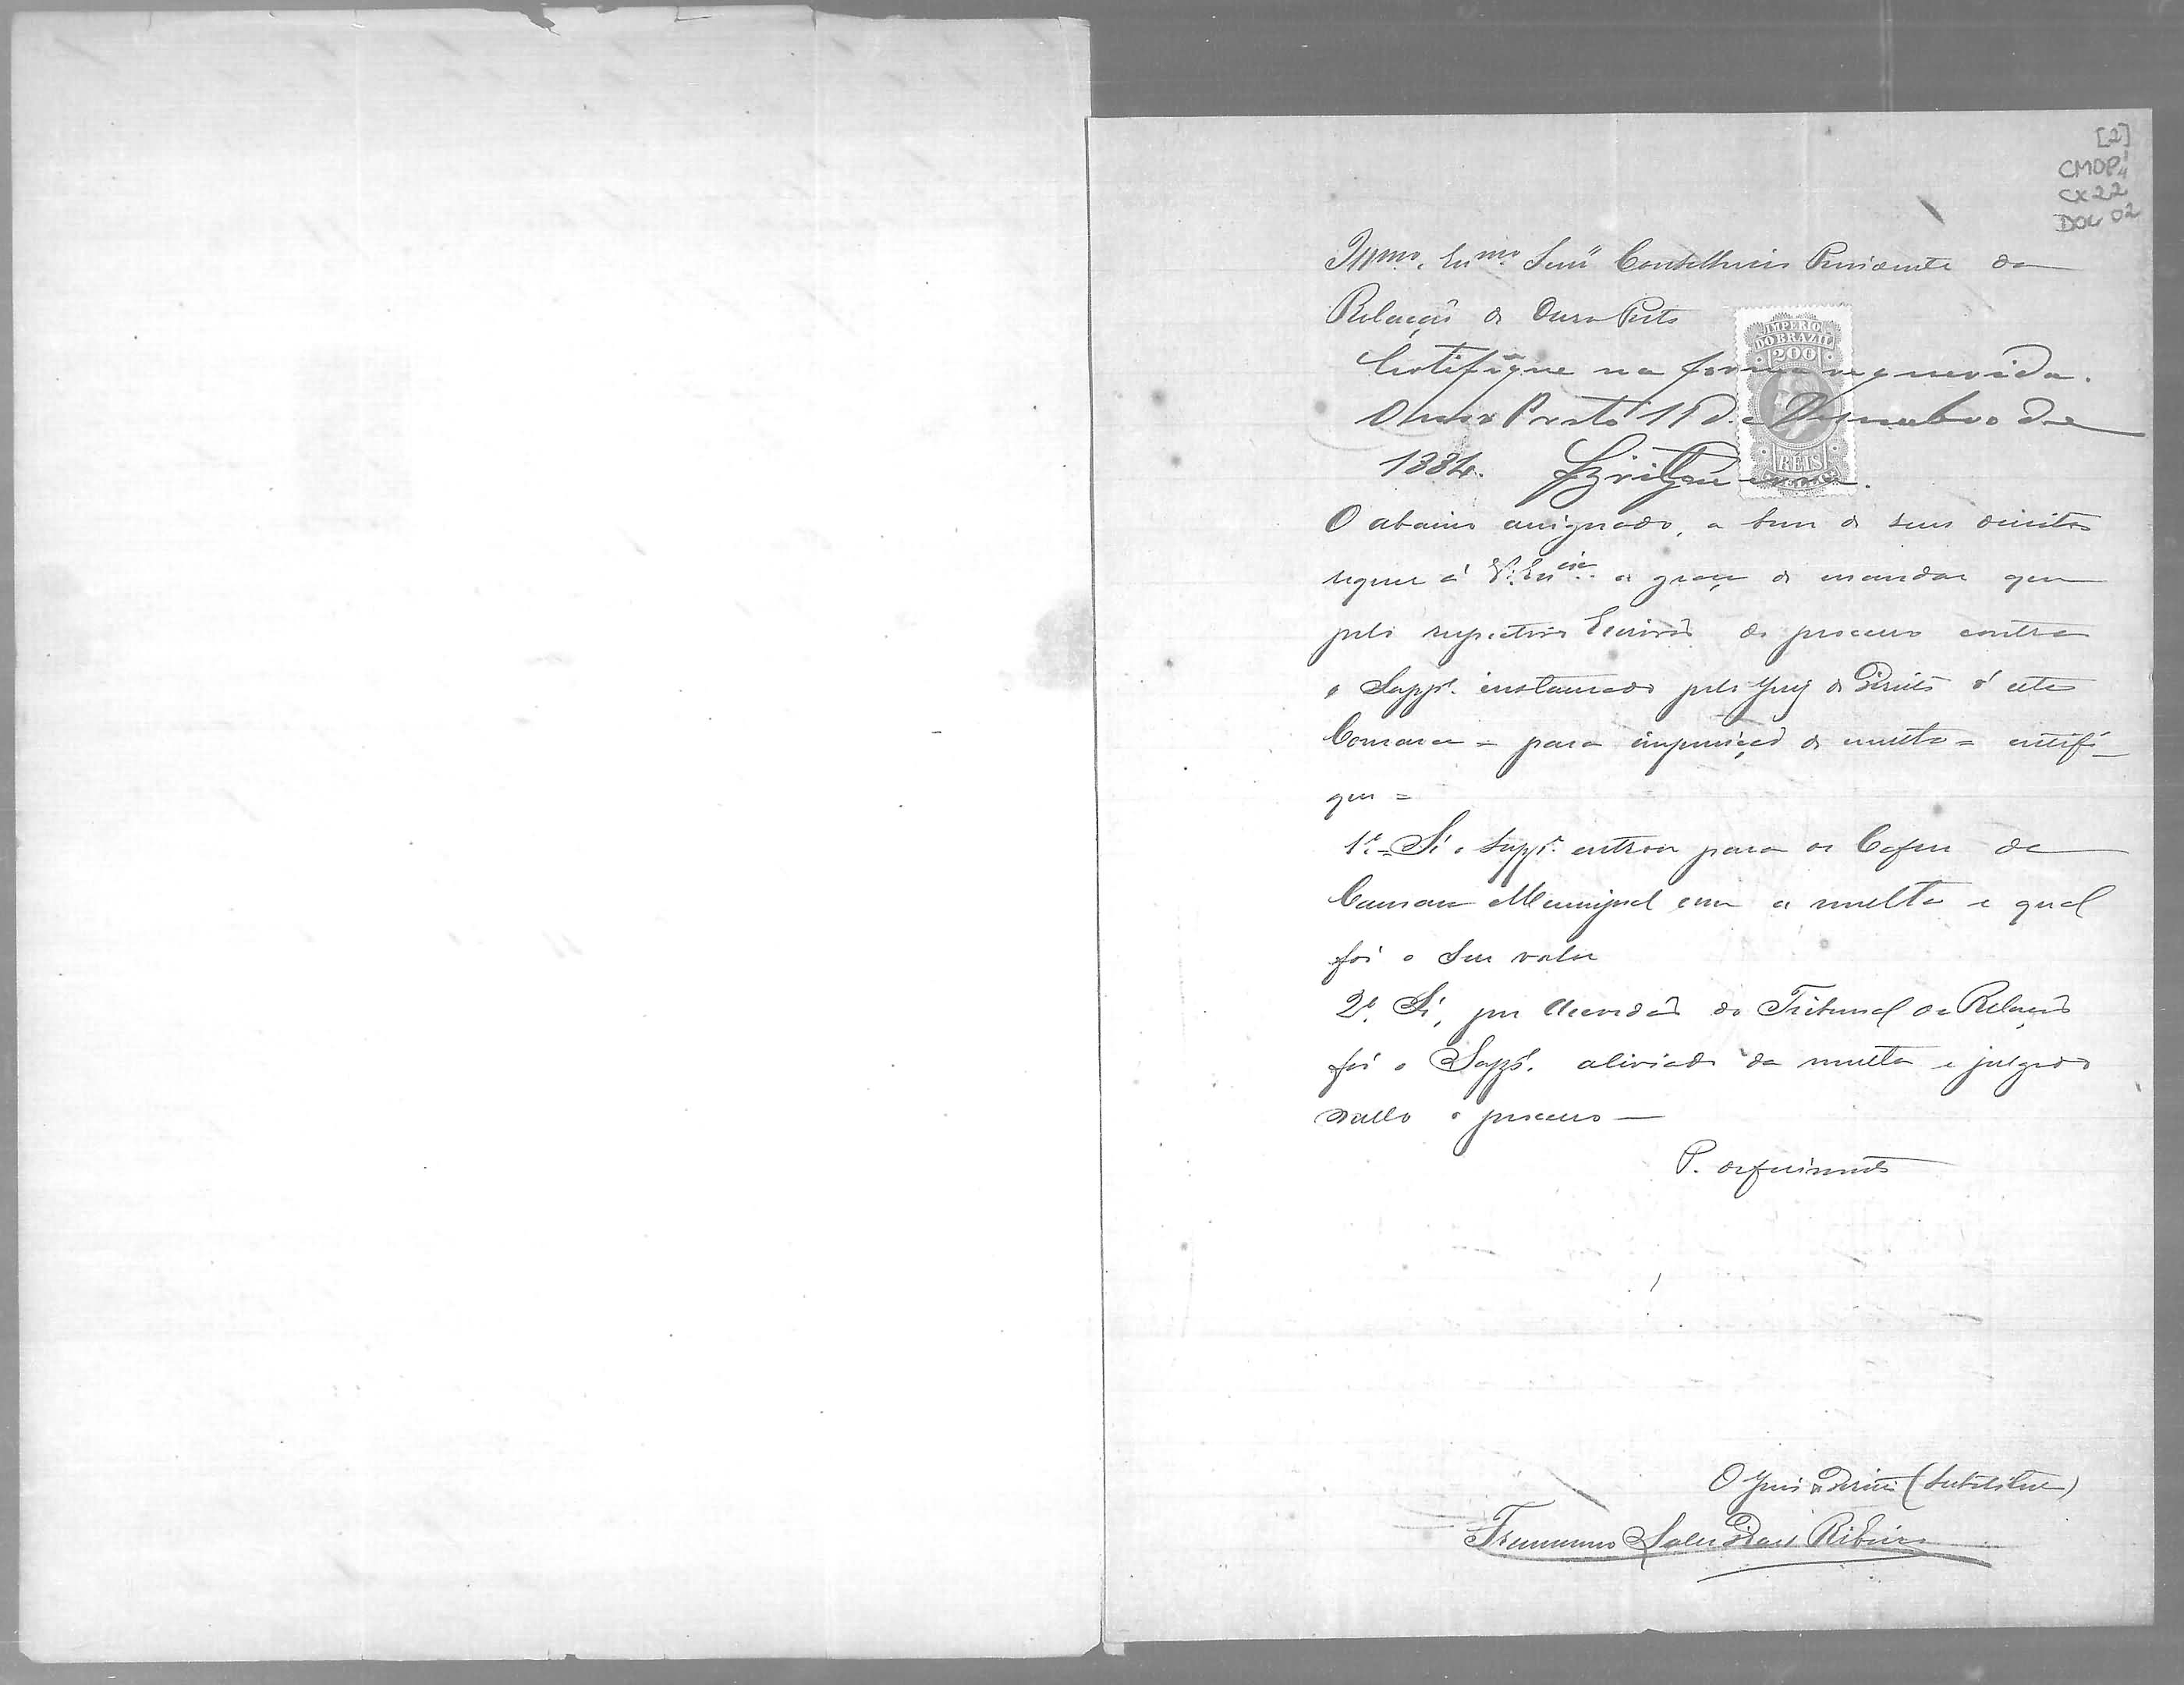 [2]
CMOP
CX 22
DOC 02
Illmo. Exmo. Senr. Conselheiro Presidente da
Relação de Ouro Preto
IMPERIO
DO BRAZIL
200
REIS
Certifique na forma requerida.
Ouro Preto 11 de Dezembro de
1884.
O abaixo assignado, a bem de seus direitos
requer á V. Excia. a graça de mandar que
pelo respectivo Escrivão do processo contra
o Suppe. instaurado pelo Juiz de Direito d'esta
Comarca = para imposição de multa = certifi-
que =
1º = Si o Suppe. entrou para os Cofres da
Camara Municipal com a multa e qual
foi o seu valor
2º Si, por Accordão do Tribunal da Relação
foi o Suppe. aliviado da multa e julgado
nullo o processo —
P. deferimento
O Juiz de Direito (substituto)
Salles Dias Ribeiro